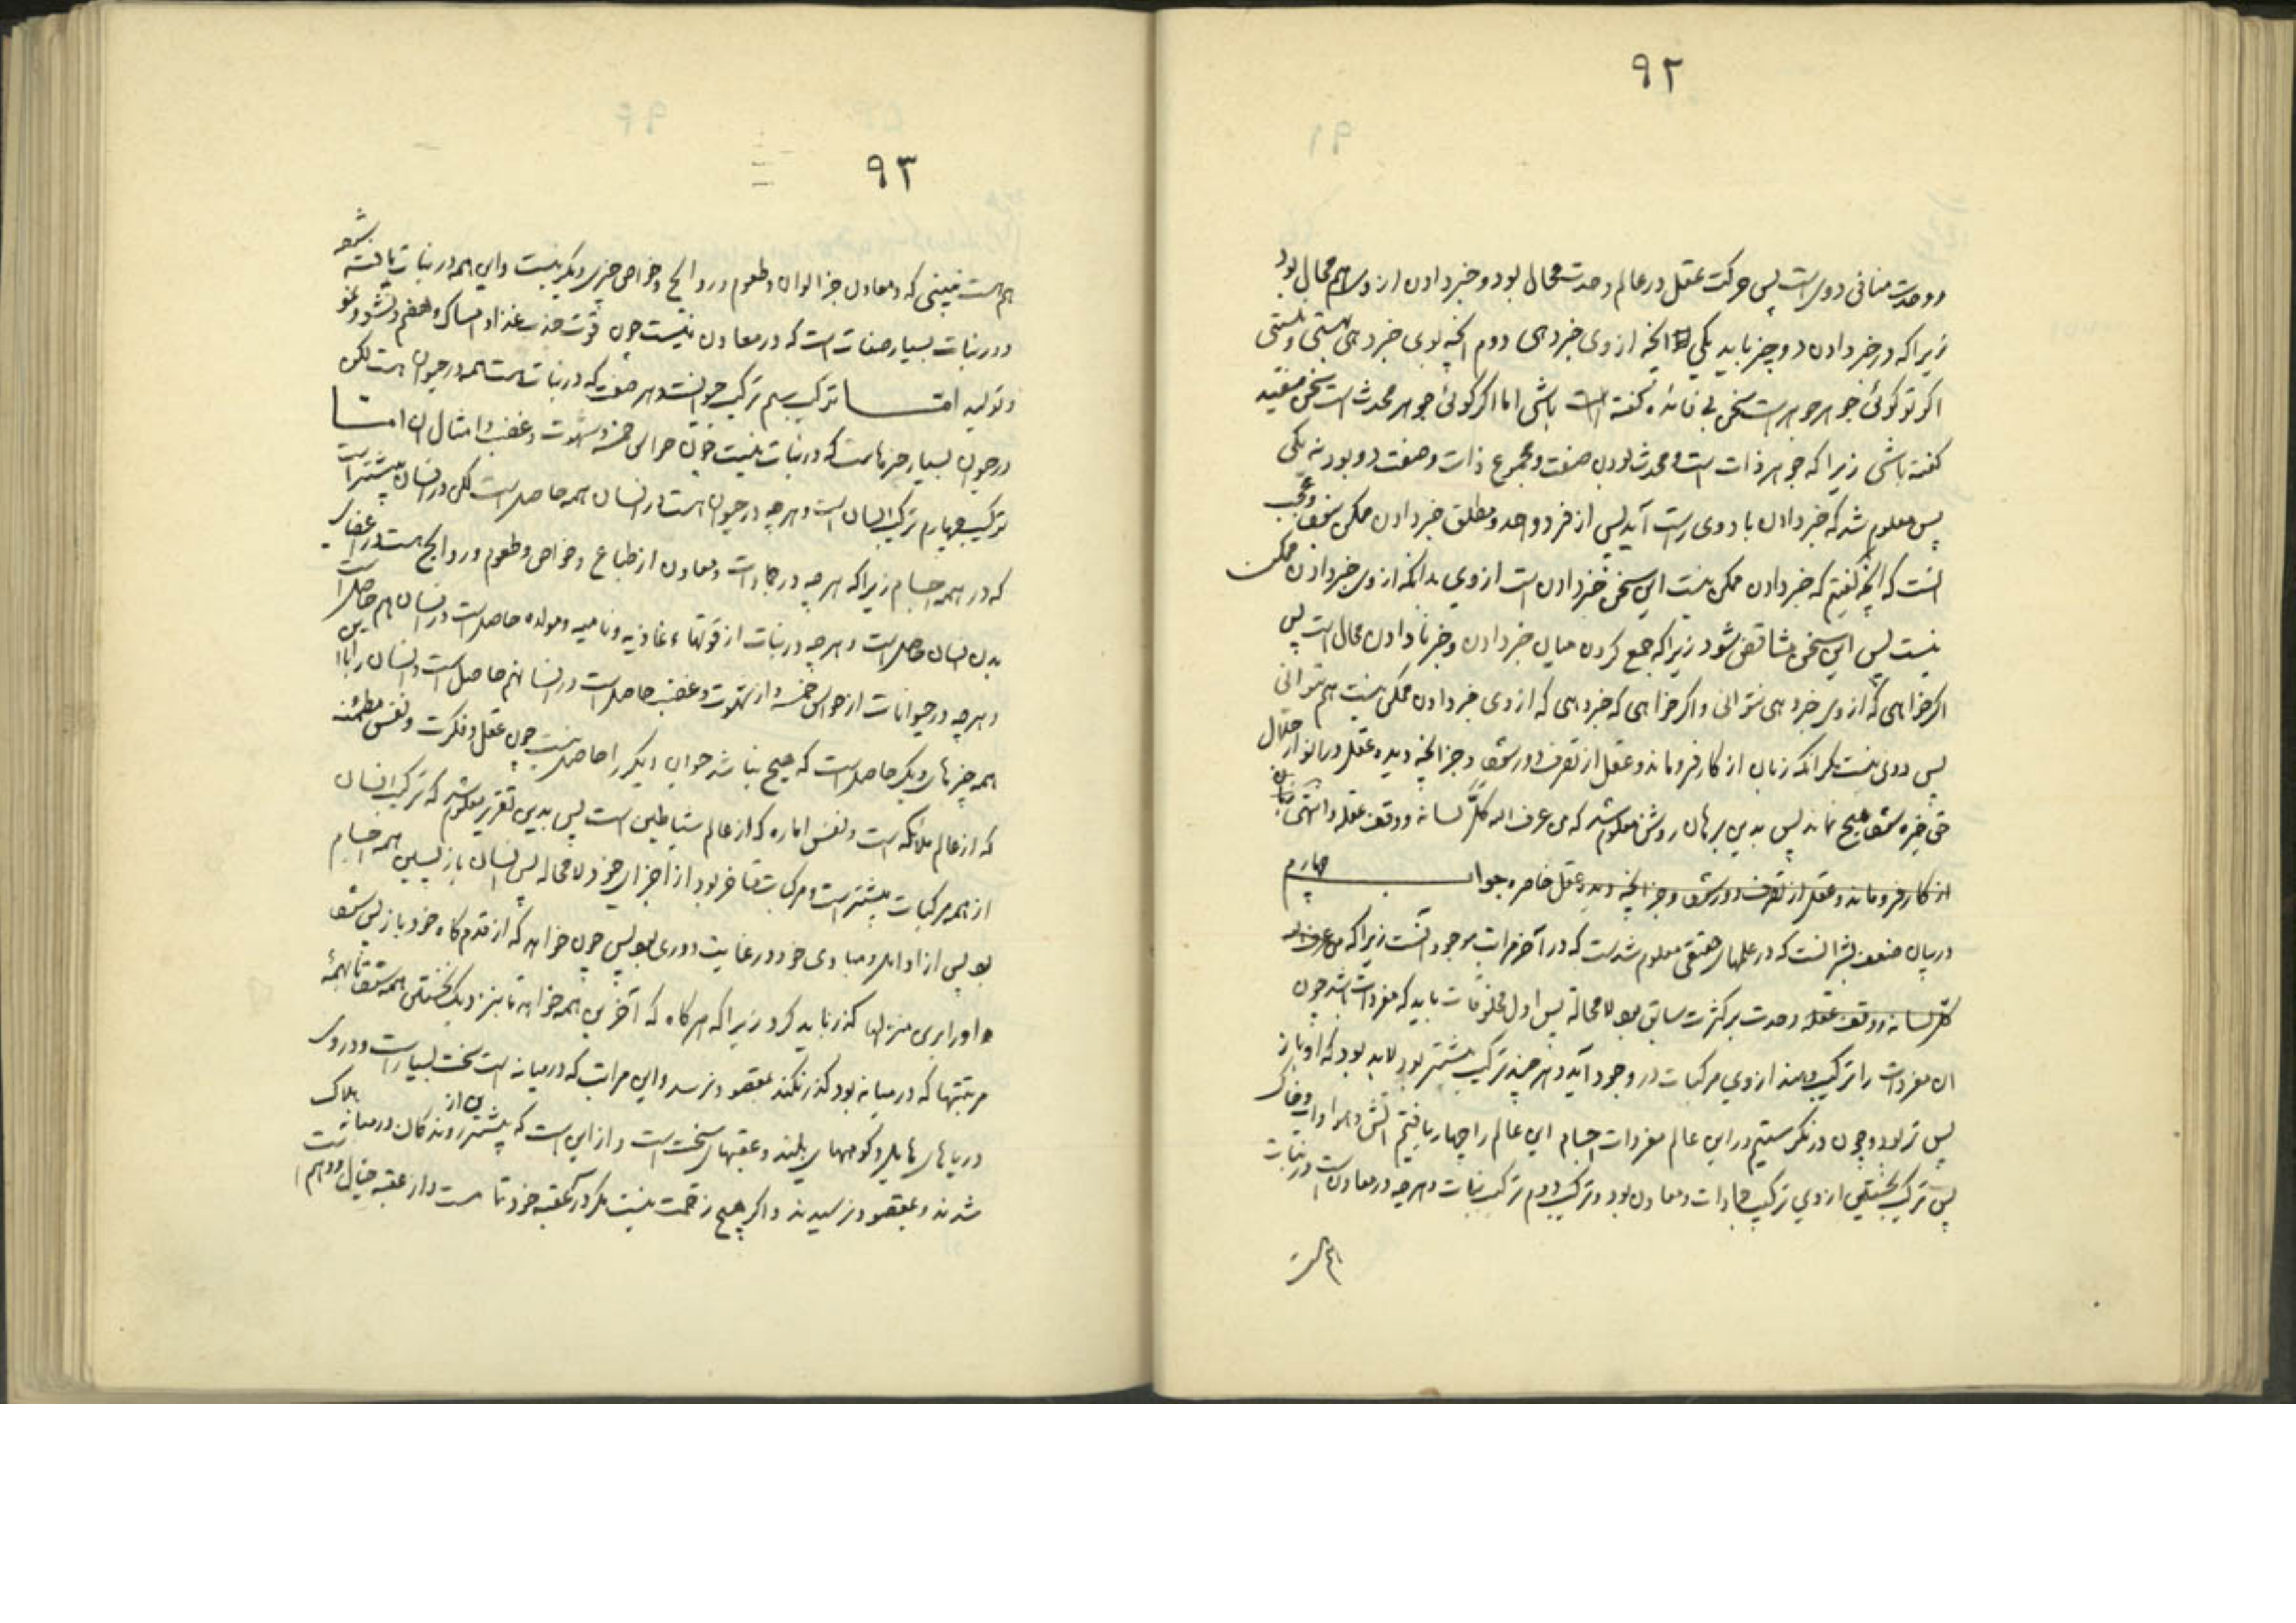 ۹۲
و وحدت منافی دوی است پس حرکت عقل در عالم وحدت محال بود و خبر دادن از وی هم محال بود
زیرا که در خبر دادن دو چیز باید یکی آنچه از وی خبر دهی دوم آنچه بوی خبر دهی هستی و نیستی
اگر تو گوئی جوهر جوهر است سخن بی فائده گفته باشی اما اگر گوئی جوهر محدث است سخن مفید
گفته باشی زیرا که جوهر ذات است و محدث بودن صفت و مجموع ذات و صفت دو بود نه یکی
پس معلوم شد که خبر دادن با دوی راست آید پس از فرد واحد و مطلق خبر دادن ممکن نبود و عجب
آنست که آنچه گفتیم که خبر دادن ممکن نیست این سخن خبر دادن است از وی بدانکه از وی خبر دادن ممکن
نیست پس این سخن متناقض شود زیرا که جمع کردن میان خبر دادن و خبر نادادن محال است پس
اگر خواهی که از وی خبر دهی نتوانی و اگر خواهی که خبر دهی که از وی خبر دادن ممکن نیست هم نتوانی
پس روی نیست مگر آنکه زبان از کار فرو ماند و عقل از تصرف دور شود و جز آنچه دیده عقل در انوار جلال
حق خیره شود هیچ نماند پس بدین برهان روشن معلوم شد که من عرف الله کل لسانه و وقف عقله و انتهی
از کار فرو ماند و عقل از تصرف دور شود و جز آنچه دیده عقل خاصره جواب چهارم
در بیان ضعف بشر آنست که در علمهای حقیقی معلوم شدست که در آخر مراتب موجود آنست زیرا که من عرف الله
کل لسانه و وقف عقله وحدت بر کثرت سابق بود لا محاله پس اول مخلوقات باید که مفردات باشد چون
آن مفردات را ترکیب دهند از وی مرکبات در وجود آید و هر چند ترکیب بیشتر بود لابد بود که او باز
پس تر بود و چون در نگرستیم در این عالم مفردات اجسام این عالم را چهار یافتیم آتش و هوا و آب و خاک
پس ترکیب نخستین از وی ترکیب جمادات و معادن بود و ترکیب دوم ترکیب نبات و هر چه در معادن است در نبات
هم هست
۹۳
هم هست نبینی که در معادن جز الوان و طعوم و روائح و خواص چیزی دیگر نیست و این همه در نبات یافته شود
و در نبات بسیار صفات است که در معادن نیست چون قوت جذب غذا و امساک و هضم و نشو و نمو
و تولید اما ترکیب سیم ترکیب حیوانست و هر صفت که در نبات هست همه در حیوان هست لکن
در حیوان بسیار چیزهاست که در نبات نیست چون حواس خمسه و شهوت و غضب و امثال آن اما
ترکیب چهارم ترکیب انسان است و هر چه در حیوان هست در انسان همه حاصل است لکن در انسان بیشتر است
که در همه اجسام زیرا که هر چه در جمادات و معادن از طباع و خواص و طعوم و روائح هست در اعضای
بدن انسان حاصل است و هر چه در نبات از قوتهاء غاذیه و نامیه و مولده حاصل است در انسان هم حاصل است
و هر چه در حیوانات از حواس خمسه و از شهوت و غضب حاصل است در انسان هم حاصل است و انسان را با این
همه چیزهای دیگر حاصل است که هیچ نباشد حیوان دیگر را حاصل نیست چون عقل و فکرت و نفس مطمئنه
که از عالم ملائکه است و نفس اماره که از عالم شیاطین است پس بدین تقریر معلوم شد که ترکیب انسان
از همه مرکبات بیشتر است و مرکبات متاخر بود از اجزای خود لا محاله پس انسان باز پسین همه اجسام
بود پس از اوایل و مبادی خود در غایت دوری بود پس چون خواهد که از قدم گاه خود باز پس شود
و او را برین منزلها گذر باید کرد زیرا که هر گاه که آخرین همه خواهد تا بنزدیک نخستین همه شود تا بهمهٔ
مرتبتها که در میانه بود گذر نکند بمقصود نرسد و این مراتب که در میانه است سخت بسیار است و در وی
دریاهای هایل و کوههای بلند و عقبهای سخت است و از این است که بیشترین از روندگان در میانه هلاک
شدند و بمقصود نرسیدند و اگر هیچ زحمت نیست مگر در آن عقبه خود تمامست و از عقبه خیال و وهم